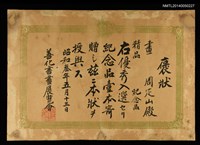 NMTL20140090227
褒狀
書
精品
紀念品
周定山殿
右優秀入選セリ
紀念品壹本寄
贈シ茲ニ本狀ヲ
授與ス
昭和參年五月十三日
善化書畫展覽會